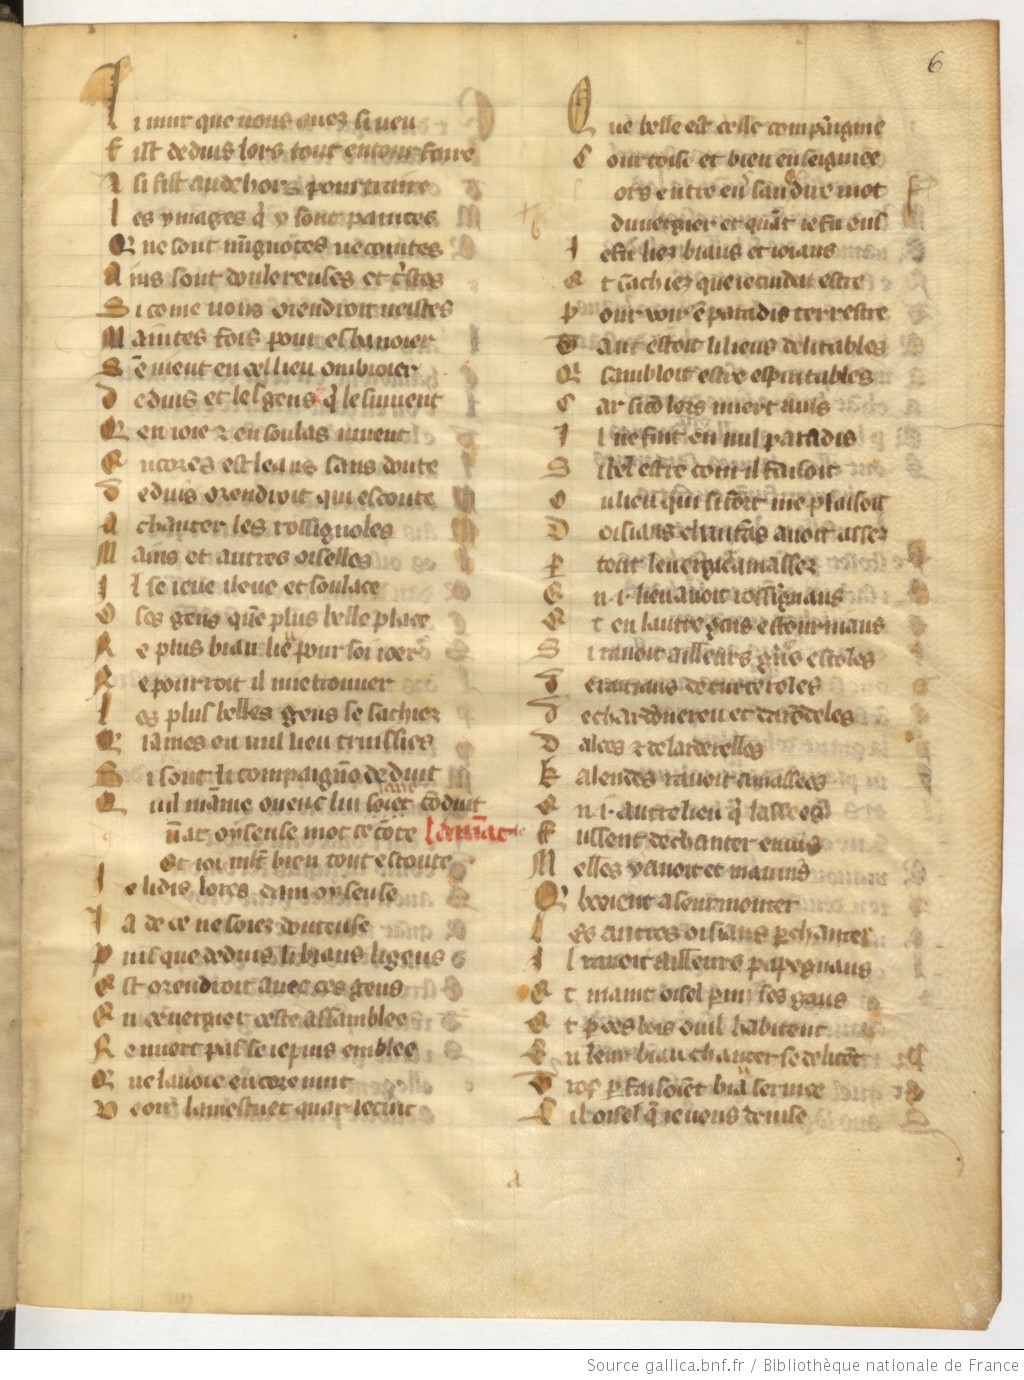 6
Li mur que vous auez si veu
Fist deduis lors tout entour faire
A si fist au dehors pourtraire
L es ymages q̃ y sont paintes
Q ue sont mignotes ne cointes
A ins sont doulereuses et t'stes
S i come vous orendroit veistes
M aintes fois pour esbanoier
S ẽ vient en cel lieu ombroier
D eduis et les gens q̃ le siuuent
Q en ioie et en soulas viuent
E ncores est leans sans doute
D eduis orendroit qui escoute
A chanter les rossignoles
M auis et autres oiselles
I l se ieue ileuc et soulace
O ses gens que plus belle place
N e plus biau lieu pour soi ioer
N e pourroit il mie trouuer
L es plus belles gens ce sachiez
Q iames en nul lieu truissiez
S i sont li compaignõ deduit
Q uil maine ouenc lui et cõduit
ñ at oyseuse mot ce cõte Lamant
Et ioi mlt bien tout escoute
I e li dis lores dam oyseuse
I a de ce ne soiez douteuse
P uis que deduis li biaus li gens
E st orendroit auec ces gens
E n ce vergier ceste assamblee
N e miert pas se ie puis emblee
Q ue la voie encore nuit
V eoir lamestuet quar ie cuit
Q ue belle est celle compaignie
C ourtoise et bien enseignie
ors entre en sans dire mot
du vergier et quãt ie fu ens
I e fu liez biaus et ioians
E t sachiez que ie cuidai estre
P our voir ẽ paradis terrestre
T ant estoit li lieus delitables
Q sambloit estre espiritables
C ar si cõ lors miert auis
I l ne fait en nul paradis
S i bel estre com il faisoit
O u lieu qui si fort me plaisoit
D oisiaus chantãs auoit assez
P tout le vergier amassez
E n .i. lieu auoit rossignaus
E t en lautre gais estourniaus
S i rauoit ailleurs grãs escoles
D e rauiaus de turteroles
D e chardonereu et darõdeles
D aloes et de larderelles
K alendes rauoit amassees
E n .i. autre lieu q̃ lassees
F ussent de chanter enuis
M elles y auoit et mauuis
Q beoient a seurmonter
L es autres oisiaus p̃ chanter
I l rauoit ailleurs papegaus
E t maint oisel
E t p ces bois ou il habitent
E n leur biau chanter se delitẽt
T rop p faisoiẽt biau seruice
C il oisel q̃ ie vous deuise
a
Source gallica.bnf.fr / Bibliothèque nationale de France